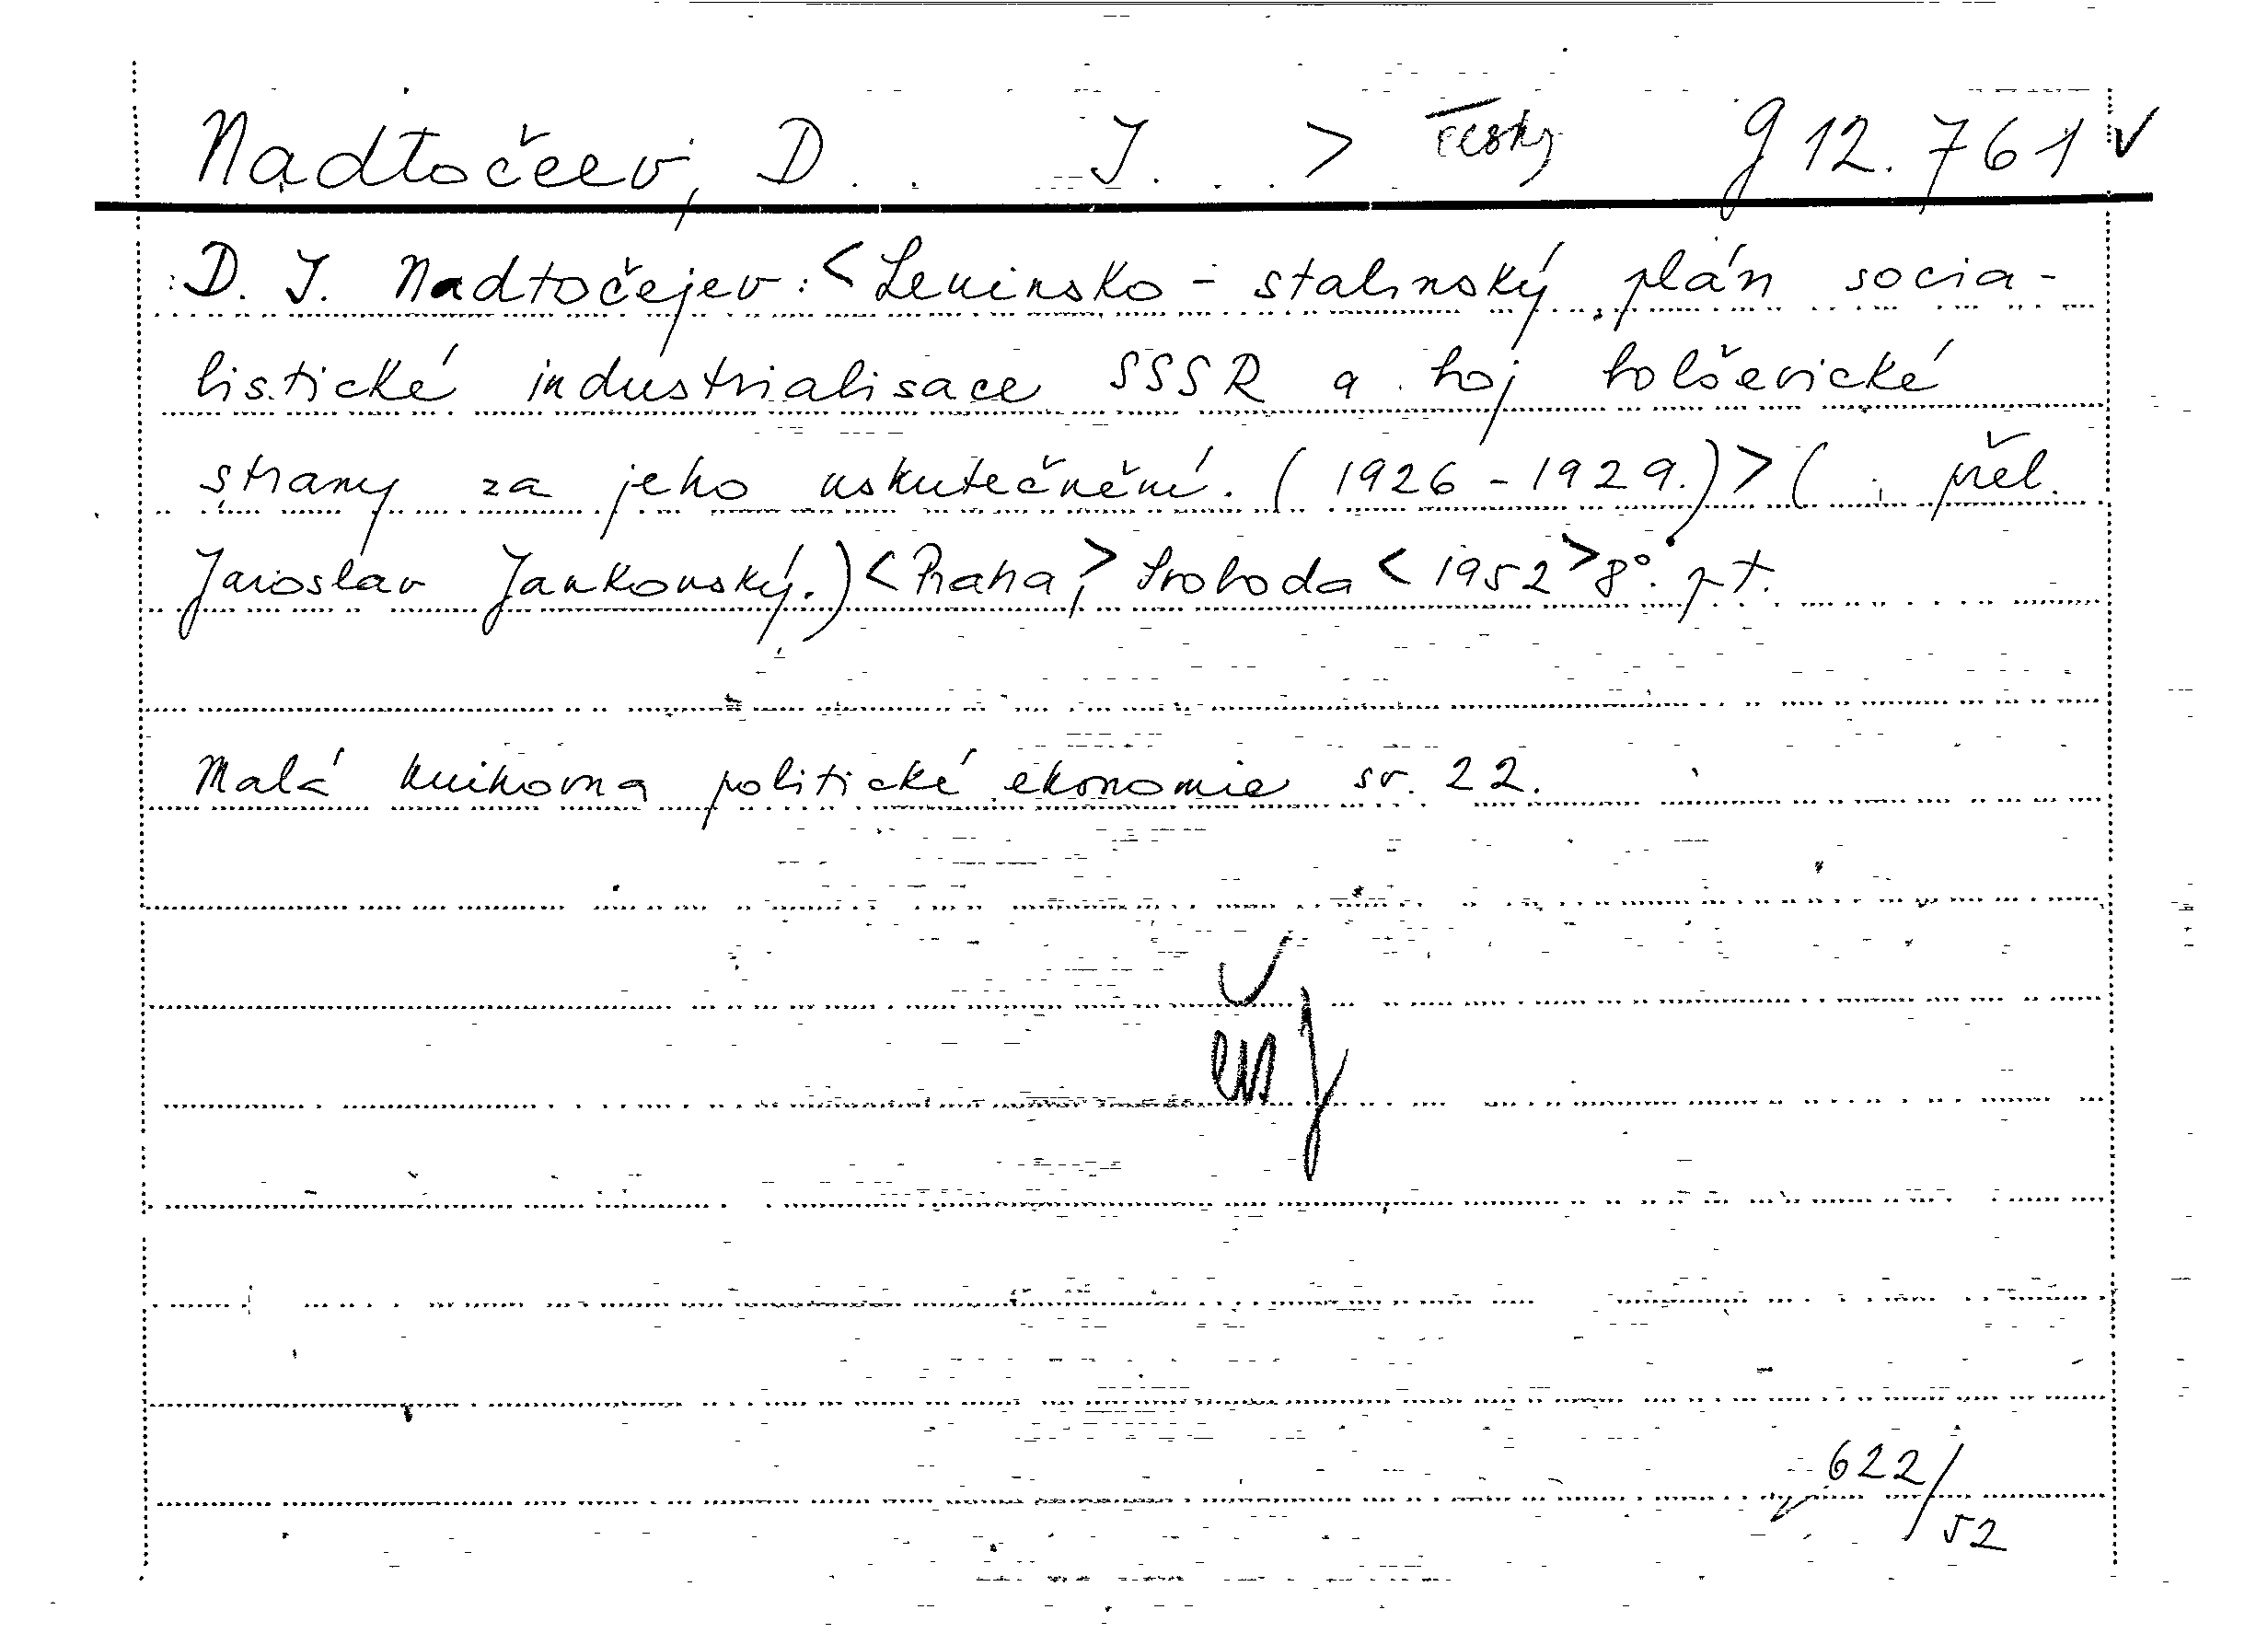 Nadtočeev, D . . J. . . > česky g 12.761 ✓
D. J. Nadtočejev: < Leninsko - stalinský plán socia-
listické industrialisace SSSR a boj bolševické
strany za jeho uskutečnění. (1926 - 1929.) > ( přel.
Jaroslav Jankovský.) < Praha, > Svoboda < 1952 > 8°. pt.
Malá knihovna politické ekonomie sv. 22.
622/52